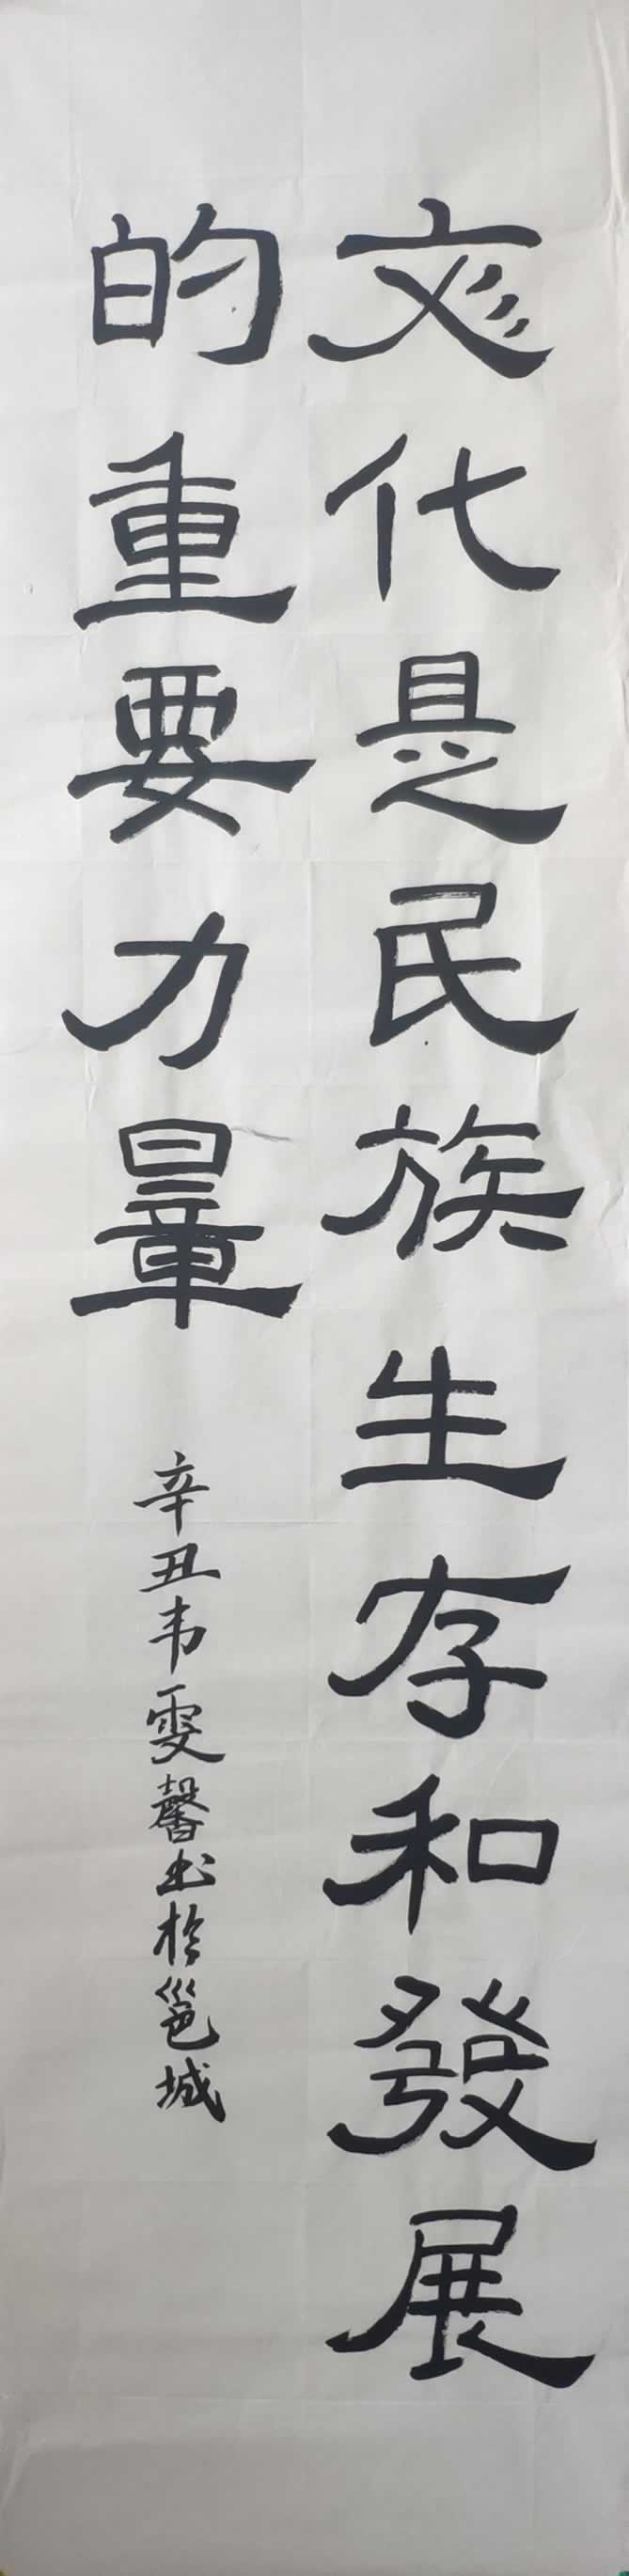 文化是民族生存和發展
的重要力量
辛丑韦雯馨书於邕城